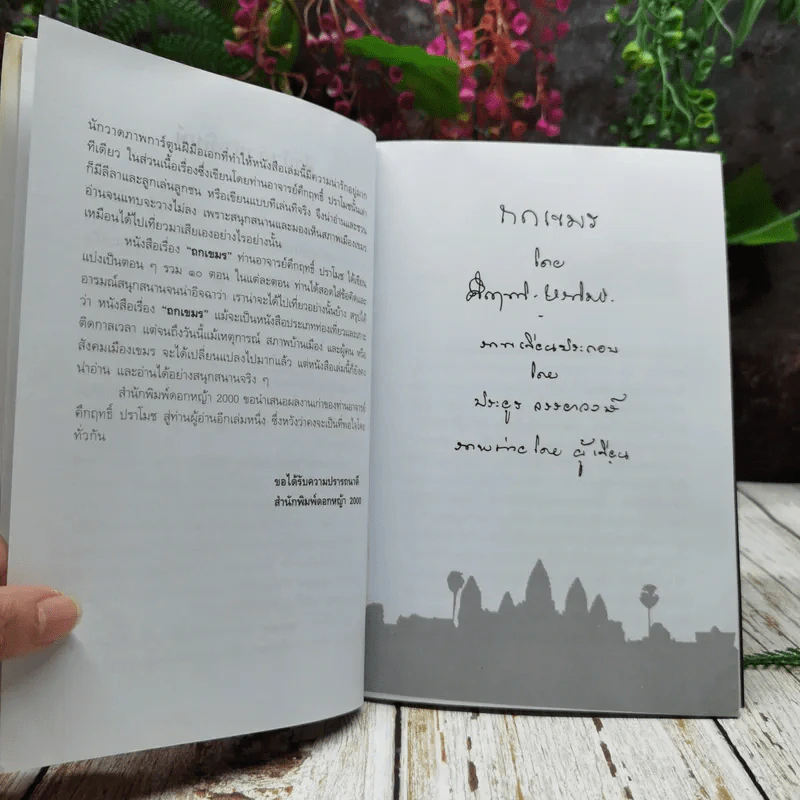 นักวาดภาพการ์ตูนฝีมือเอกที่ทำให้หนังสือเล่มนี้มีความน่ารักอยู่มาก
ทีเดียว ในส่วนเนื้อเรื่องซึ่งเขียนโดยท่านอาจารย์คึกฤทธิ์ ปราโมชนั้นเล่า
ก็มีลีลาและลูกเล่นลูกชน หรือเขียนแบบทีเล่นทีจริง จึงน่าอ่านและชวน
อ่านจนแทบจะวางไม่ลง เพราะสนุกสนานและมองเห็นสภาพเมืองเขมร
เหมือนได้ไปเที่ยวมาเสียเองอย่างไรอย่างนั้น
หนังสือเรื่อง "ถกเขมร" ท่านอาจารย์คึกฤทธิ์ ปราโมช ได้เขียน
แบ่งเป็นตอน ๆ รวม ๑๐ ตอน ในแต่ละตอน ท่านได้สอดใส่ข้อคิดและ
อารมณ์สนุกสนานจนน่าอิจฉาว่า เราน่าจะได้ไปเที่ยวอย่างนั้นบ้าง สรุปได้
ว่า หนังสือเรื่อง "ถกเขมร" แม้จะเป็นหนังสือประเภทท่องเที่ยวและเกาะ
ติดกาลเวลา แต่จนถึงวันนี้แม้เหตุการณ์ สภาพบ้านเมือง และผู้คน หรือ
สังคมเมืองเขมร จะได้เปลี่ยนแปลงไปมากแล้ว แต่หนังสือเล่มนี้ก็ยังคง
น่าอ่าน และอ่านได้อย่างสนุกสนานจริง ๆ
สำนักพิมพ์ดอกหญ้า 2000 ขอนำเสนอผลงานเก่าของท่านอาจารย์
คึกฤทธิ์ ปราโมช สู่ท่านผู้อ่านอีกเล่มหนึ่ง ซึ่งหวังว่าคงจะเป็นที่พอใจโดย
ทั่วกัน
ขอได้รับความปรารถนาดี
สำนักพิมพ์ดอกหญ้า 2000
ถกเขมร
โดย
คึกฤทธิ์ ปราโมช
ภาพเขียนประกอบ
โดย
ประยูร จรรยาวงษ์
ภาพถ่ายโดย ผู้เขียน